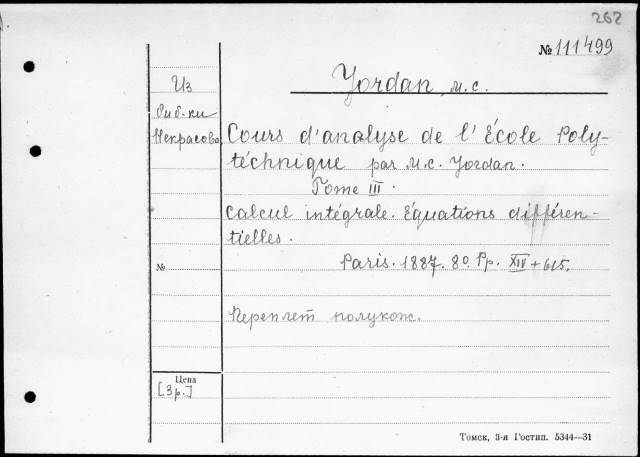 262
№ 111499
Из
биб-ки
Некрасова
Yordan, M.C.
Cours d'analyse de l'École Poly-
téchnique par M.C. Yordan.
Tome III.
Calcul intégrale. Équations différen-
tielles.
Paris. 1887. 8°. Pp. XIV + 615.
№
Переплет полукож.
Цена
[3р.]
Томск, 3-я Гостип. 5344—31